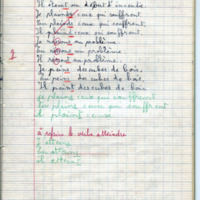 Il éteint un début d'incendie.
Je plains ceux qui souffrent
Tu plains ceux qui souffrent.
Il plaint ceux qui souffrent
Je résous un problème.
Tu résous un problème
Il résout un problème.
Je peins des cubes de bois.
Tu peins des cubes de bois.
Il peint des cubes de bois
Je plains ceux qui souffrent
Tu plains ceux qui souffrent
Il plaint ceux qui souffrent
à refaire le verbe atteindre
J'atteins
Tu atteins
Il atteint